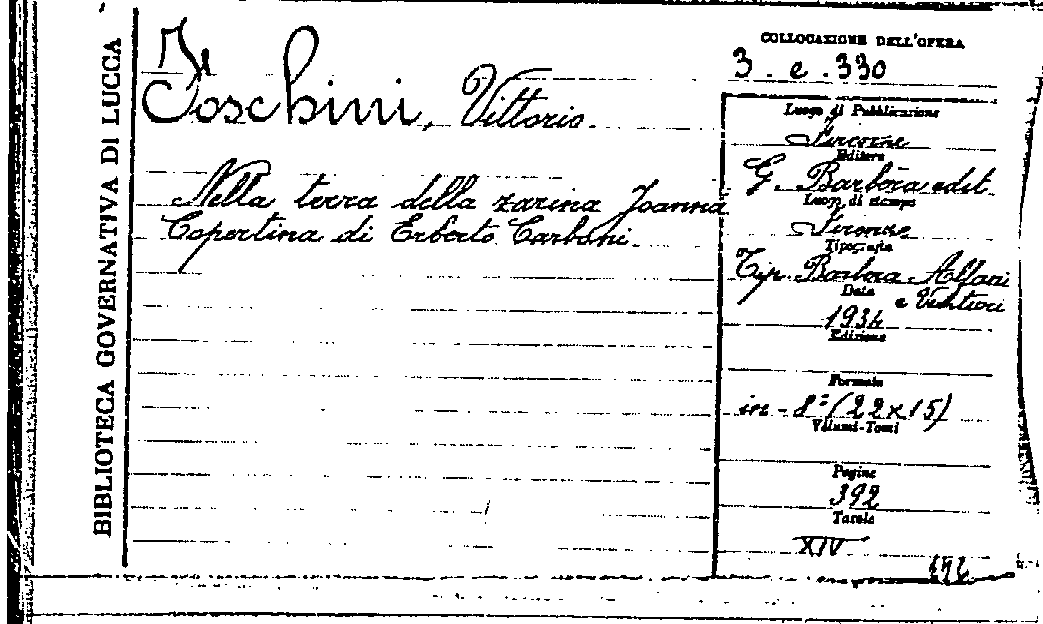 BIBLIOTECA GOVERNATIVA DI LUCCA
Foschini, Vittorio.
Nella terra della zarina Joanna
Copertina di Erberto Carboni.
COLLOCAZIONE DELL'OPERA
3. e. 330
Luogo di Pubblicazione
Firenze
Editore
G. Barbèra edit.
Luogo di stampa
Firenze
Tipografia
Tip. Barbèra Alfani
e Venturi
Data
1934
Edizione
Formato
in-8° (22x15)
Volumi-Tomi
Pagine
392
Tavole
XIV